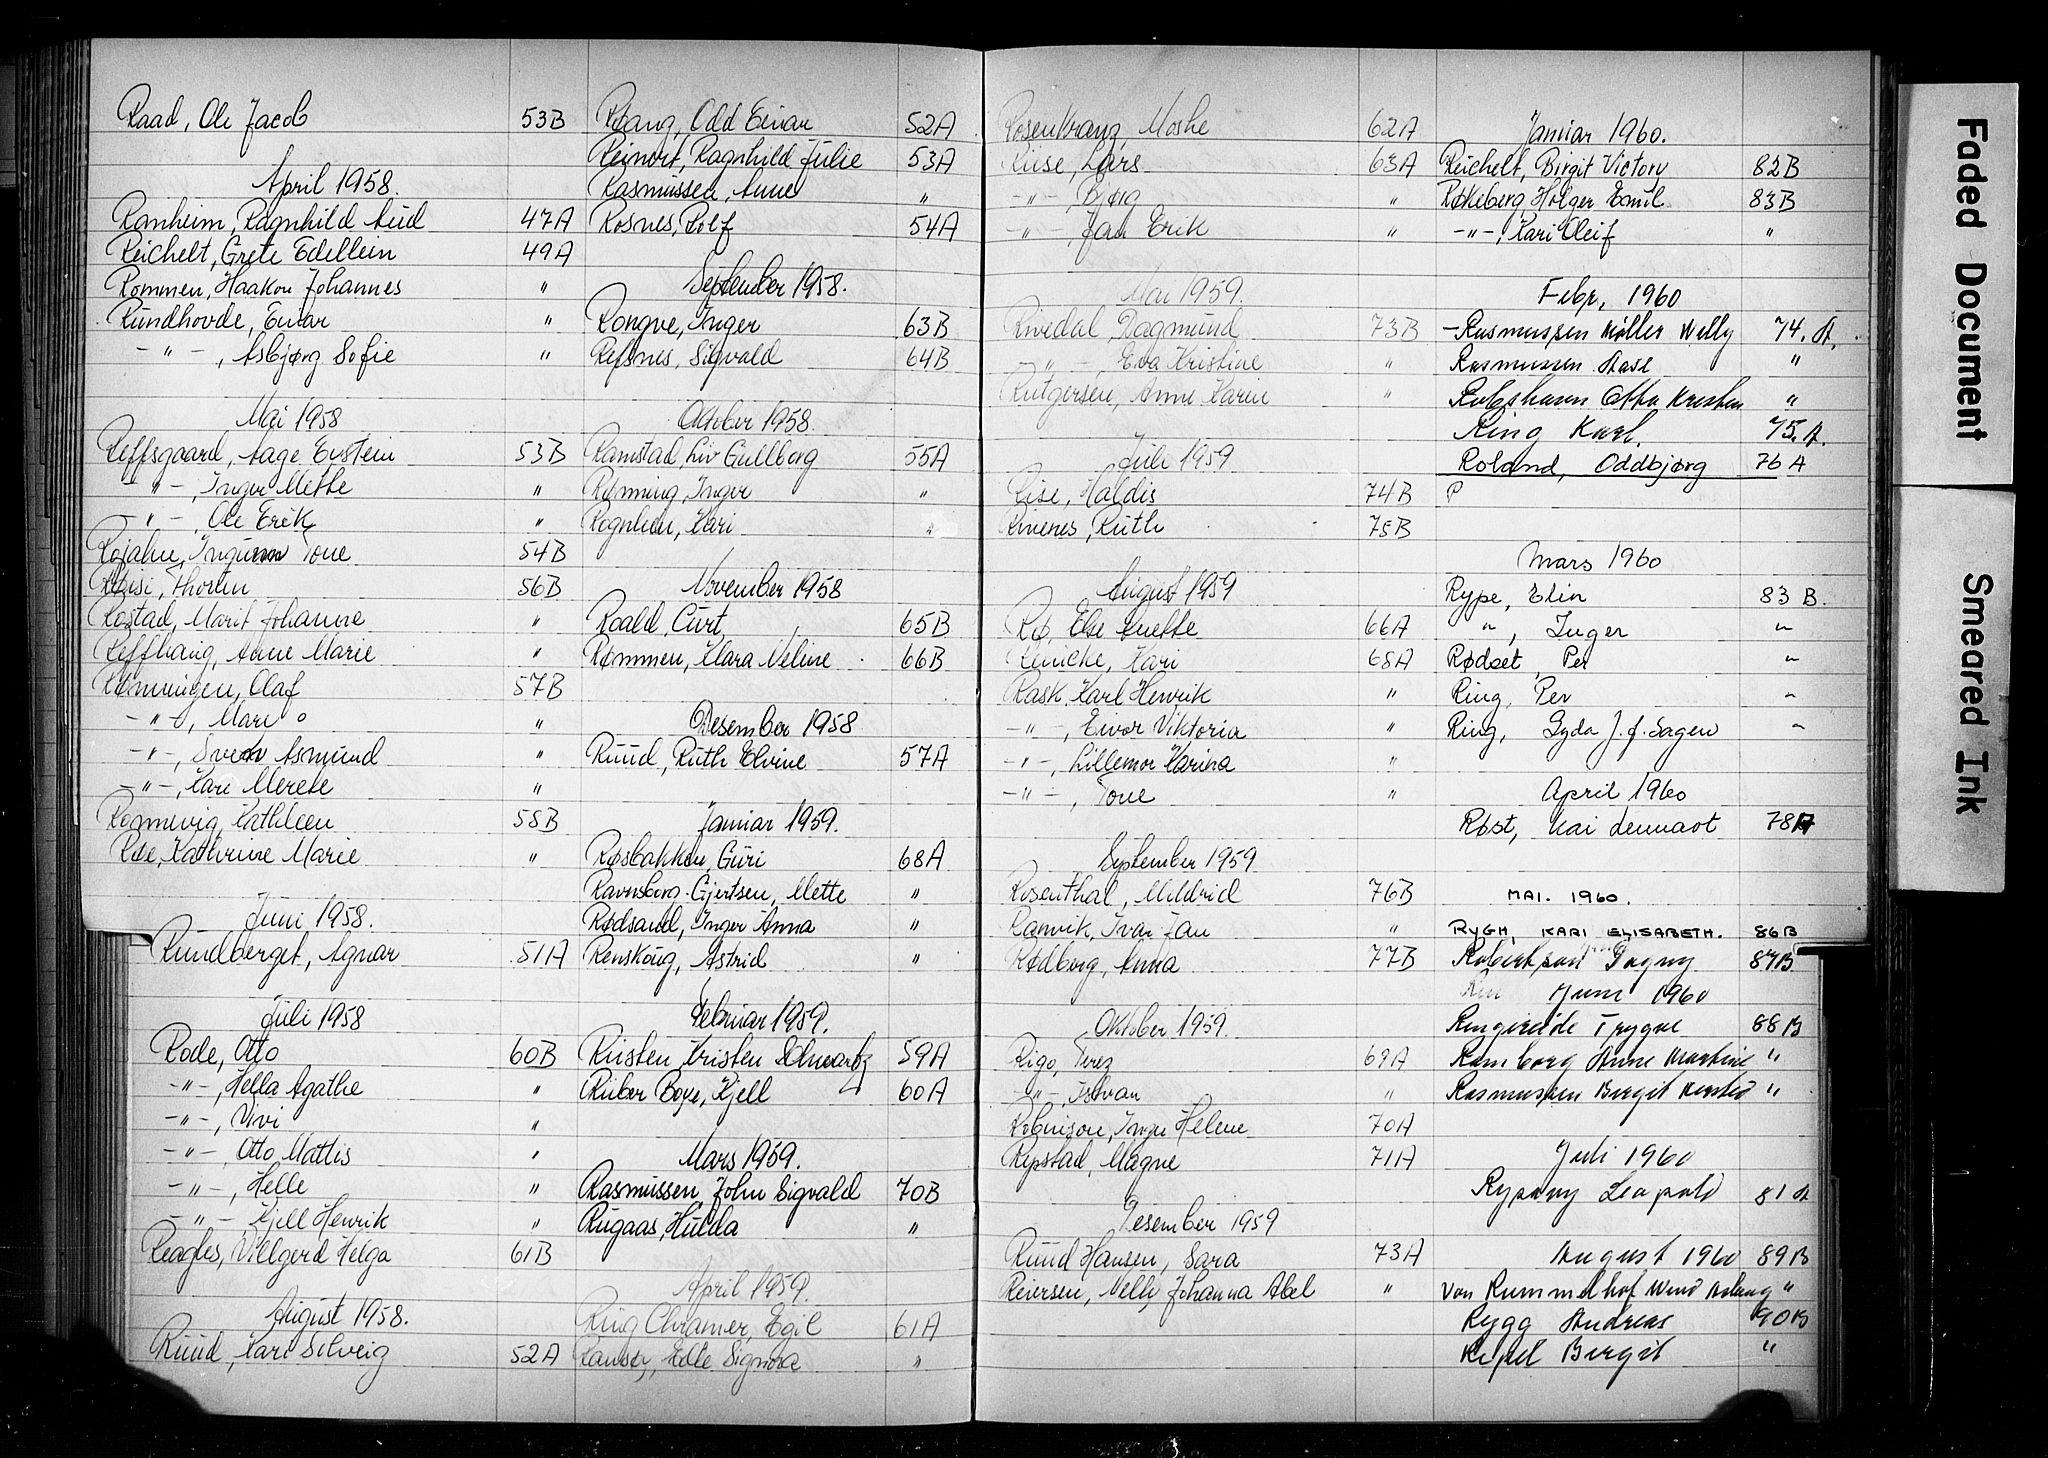 Raad, Ole Jacob 53B
April 1958.
Ramheim, Ragnhild Aud 47A
Reichelt, Grete Edellein 49A
Rommen, Haakon Johannes "
Rundhovde, Einar "
-"-, Asbjørg Sofie "
Mai 1958
Reffsgaard, Aage Eystein 53B
-"-, Inger Mette "
-"-, Ole Erik "
Rojahn, Ingunn Tone 54B
Thorlin 56B
Rostad, Marit Johanne "
Reffhaug, Anne Marie "
Rønningen, Olaf 57B
-"-, Mari "
-"-, Svein Asmund "
-"-, Kari Merete "
Rønnevig, Kathleen 58B
Røe, Kathrine Marie "
Juni 1958.
Rundberget, Agnar 51A
Juli 1958
Rode, Otto 60B
-"-, Hella Agathe "
-"-, Vivi "
-"-, Otto Mattis "
-"-, Helle "
-"-, Kjell Henrik "
Reagles, Villgerd Helga 61B
August 1958.
Ruud, Kari Solveig 52A
Rang, Odd Einar 52A
Reinort, Ragnhild Julie 53A
Rasmussen, Anne "
Rosnes, Rolf 54A
September 1958.
Rongve, Inger 63B
Refsnes, Sigvald 64B
Oktober 1958.
Ramstad, Liv Gullborg 55A
Rønning, Inger "
Rognlien, Kari "
November 1958
Roald, Curt 65B
Rømmen, Klara Neline 66B
Desember 1958
Ruud, Ruth Elvine 57A
Januar 1959.
Røsbakken, Guri 68A
Ravnsborg-Gjertsen, Mette "
Rødsand, Inger Anna "
Renskoug, Astrid "
Februar 1959.
Riisten Kristen Schwartz 59A
Ruber Boye, Kjell 60A
Mars 1959.
Rasmussen, John Sigvald 70B
Rugaas, Hulda "
April 1959.
Ring Chramer, Egil 61A
Edle Signora "
Rosenkranz, Moshe 62A
Riise, Lars 63A
-"-, Bjørg "
-"-, Jan Erik "
Mai 1959.
Rivedal, Dagmund 73B
-"-, Eva Kristine "
Rutgersen, Anne Karin "
Juli 1959
Riise, Haldis 74B
Rimenes, Ruth 75B
August 1959
Rø, Else Anette 66A
Reincke, Kari 68A
Rask, Karl Henrik "
-"-, Eivor Viktoria "
-"-, Lillemor Karina "
-"-, Tove "
September 1959
Rosenthal, Mildrid 76B
Ranvik, Ivar Jan "
Rødberg, Anna 77B
Oktober 1959.
Rigo, Terez 69A
-"-, Istvan "
Robinson, Inger Helene 70A
Repstad, Magne 71A
Desember 1959
Ruud Hansen, Sara 73A
Reiersen, Nelly Johanna Abel "
Januar 1960.
Reichelt, Birgit Victory 82B
Røkeberg Holger Emil 83B
-"-, Kari Oleif "
Febr, 1960
-Rasmussen Møller Willy 74. A.
Rasmussen Aase "
Otto Kristian "
Ring Karl. 75. A.
Roland, Oddbjørg 76 A
P
Mars 1960
Rype, Elin 83 B.
", Inger "
Rødset, Per "
Ring, Per "
Ring, Gyda J. J. Sagen "
April 1960
Røst, Kai Lennart 78A
MAI. 1960.
RYGH, KARI ELISABETH. 86B
Robertson Dagny 87B
Juni 1960
Ringereide Trygve 88B
Ramborg Anne Martine "
Rasmussen Birgit Kersted "
Juli 1960
Leopold 81 A
August 1960 89B
von Rummelhof "
Rygg Andreas 90B
Birgit "
Faded Document
Smeared Ink